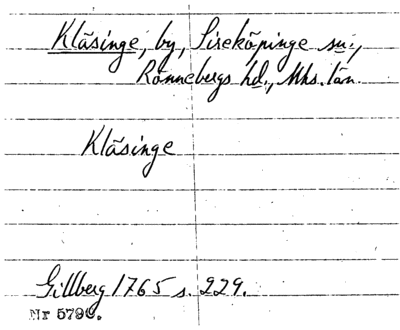 Kläsinge, by, Sireköpinge sn.,
Rönnebergs hd., Mhs. län.
Kläsinge
Gillberg 1765 s. 229.
Nr